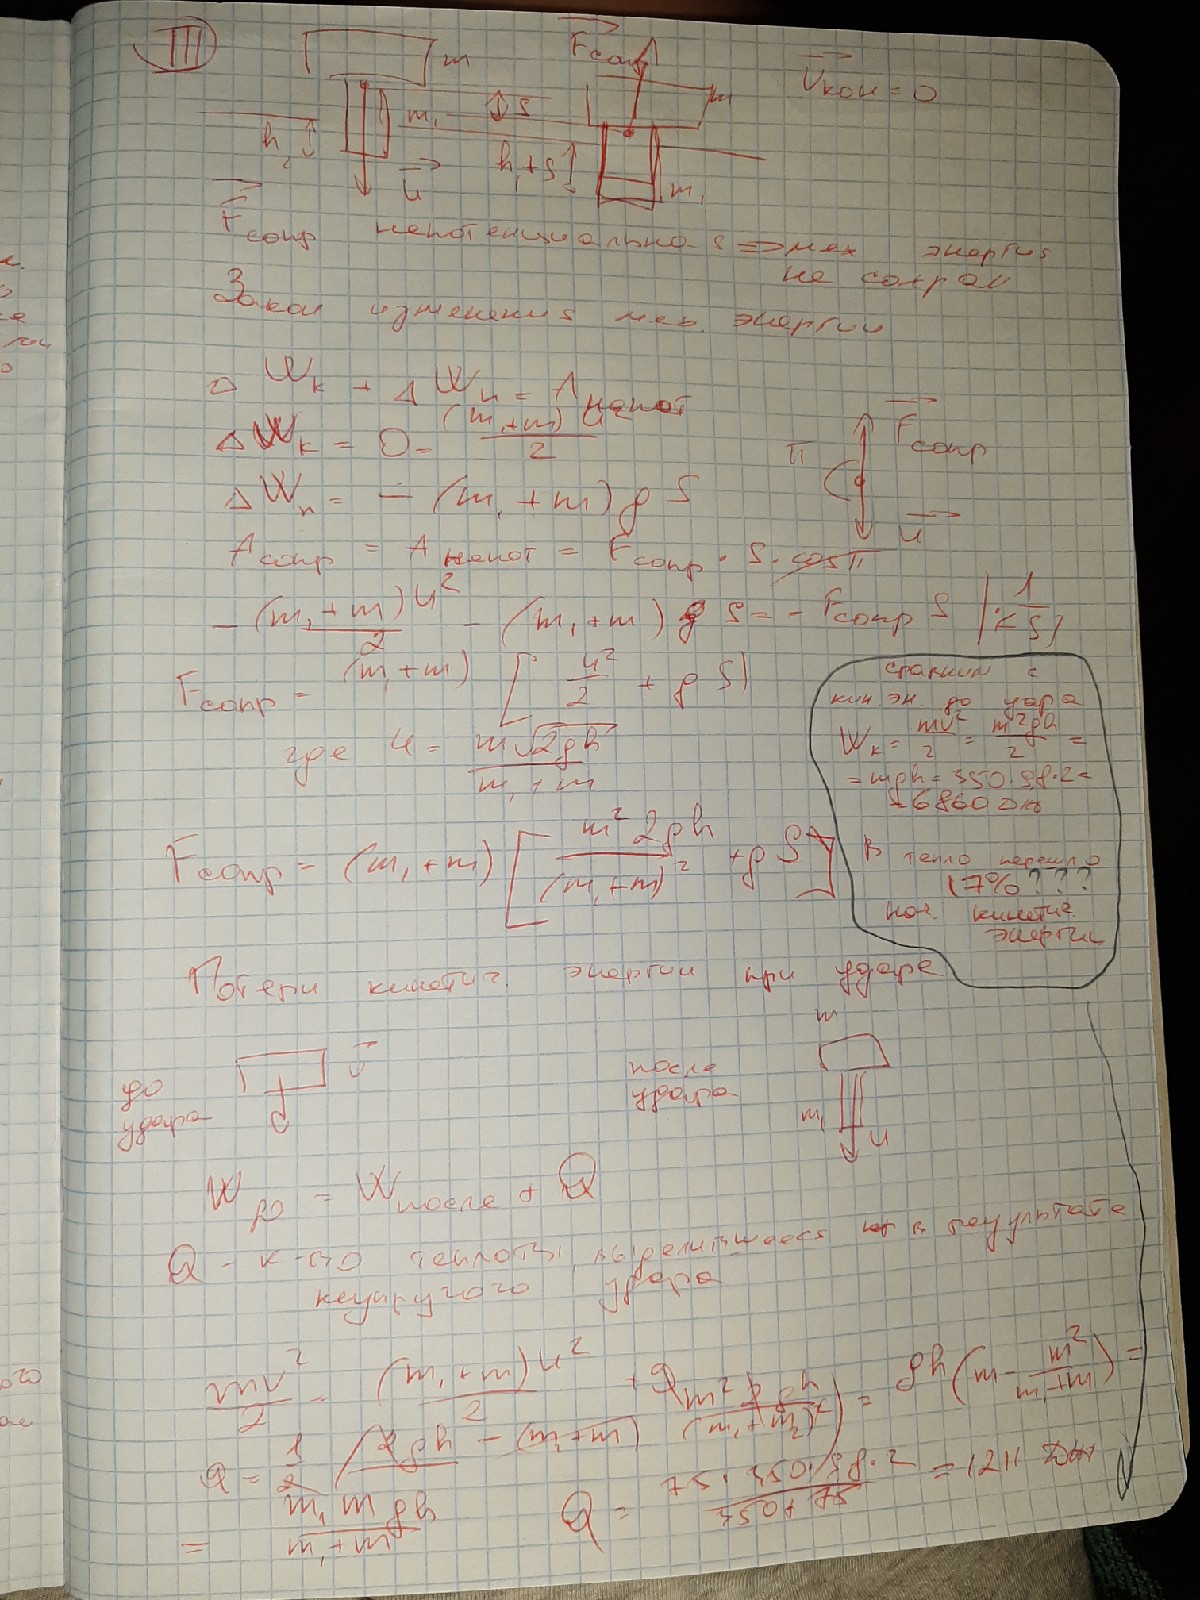 III
m
F сопр
m
V кон = 0
h₁
m₁
S
h₁+S
u
m₁
F сопр непотенциальная => мех энергия
не сохран
Закон изменения мех. энергии
Δ Wк + Δ Wп = A непот
Δ Wк = 0 - (m₁+m) u² / 2
Δ Wп = - (m₁+m) g S
π
F сопр
u
A сопр = A непот = F сопр · S · cos π
- (m₁+m) u² / 2 - (m₁+m) g S = - F сопр S | × 1/S |
F сопр = (m₁+m) [ u²/2 + g S ]
где u = m√2gh / m₁+m
F сопр = (m₁+m) [ m² 2gh / (m₁+m)² + g S ]
сравним с
кин. эн. до удара
Wк = mv²/2 = m2gh/2 =
= mgh = 350·9,8·2 =
= 6860 Дж
В тепло перешло
17% ? ? ?
нач. кинетич.
энергии
Потери кинетич. энергии при ударе
до
удара
v
после
удара
m
m₁
u
W до = W после + Q
Q - к-во теплоты, выделившееся в результате
неупругого удара
mv²/2 = (m₁+m) u² / 2 + Q
Q = 1/2 ( m 2gh - (m₁+m) m² 2gh / (m₁+m)² ) = gh ( m - m² / m₁+m ) =
= m₁ m gh / m₁+m
Q = = 1211 Дж